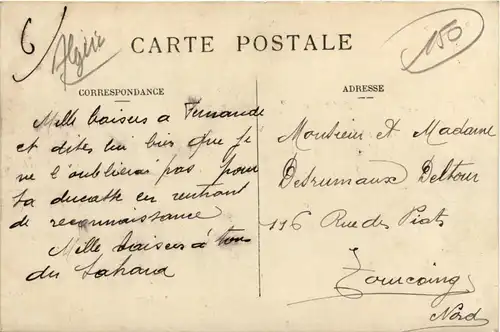 6
Algérie
CARTE POSTALE
150
CORRESPONDANCE
ADRESSE
Mille baisers a Fernande
et dites lui bien que je
ne l'oublierai pas pour
sa ducasse en rentrant
de reconnaissance
Mille baisers à tous
du Sahara
Monsieur et Madame
Desrumaux Deltour
116 Rue des Piats
Tourcoing
Nord